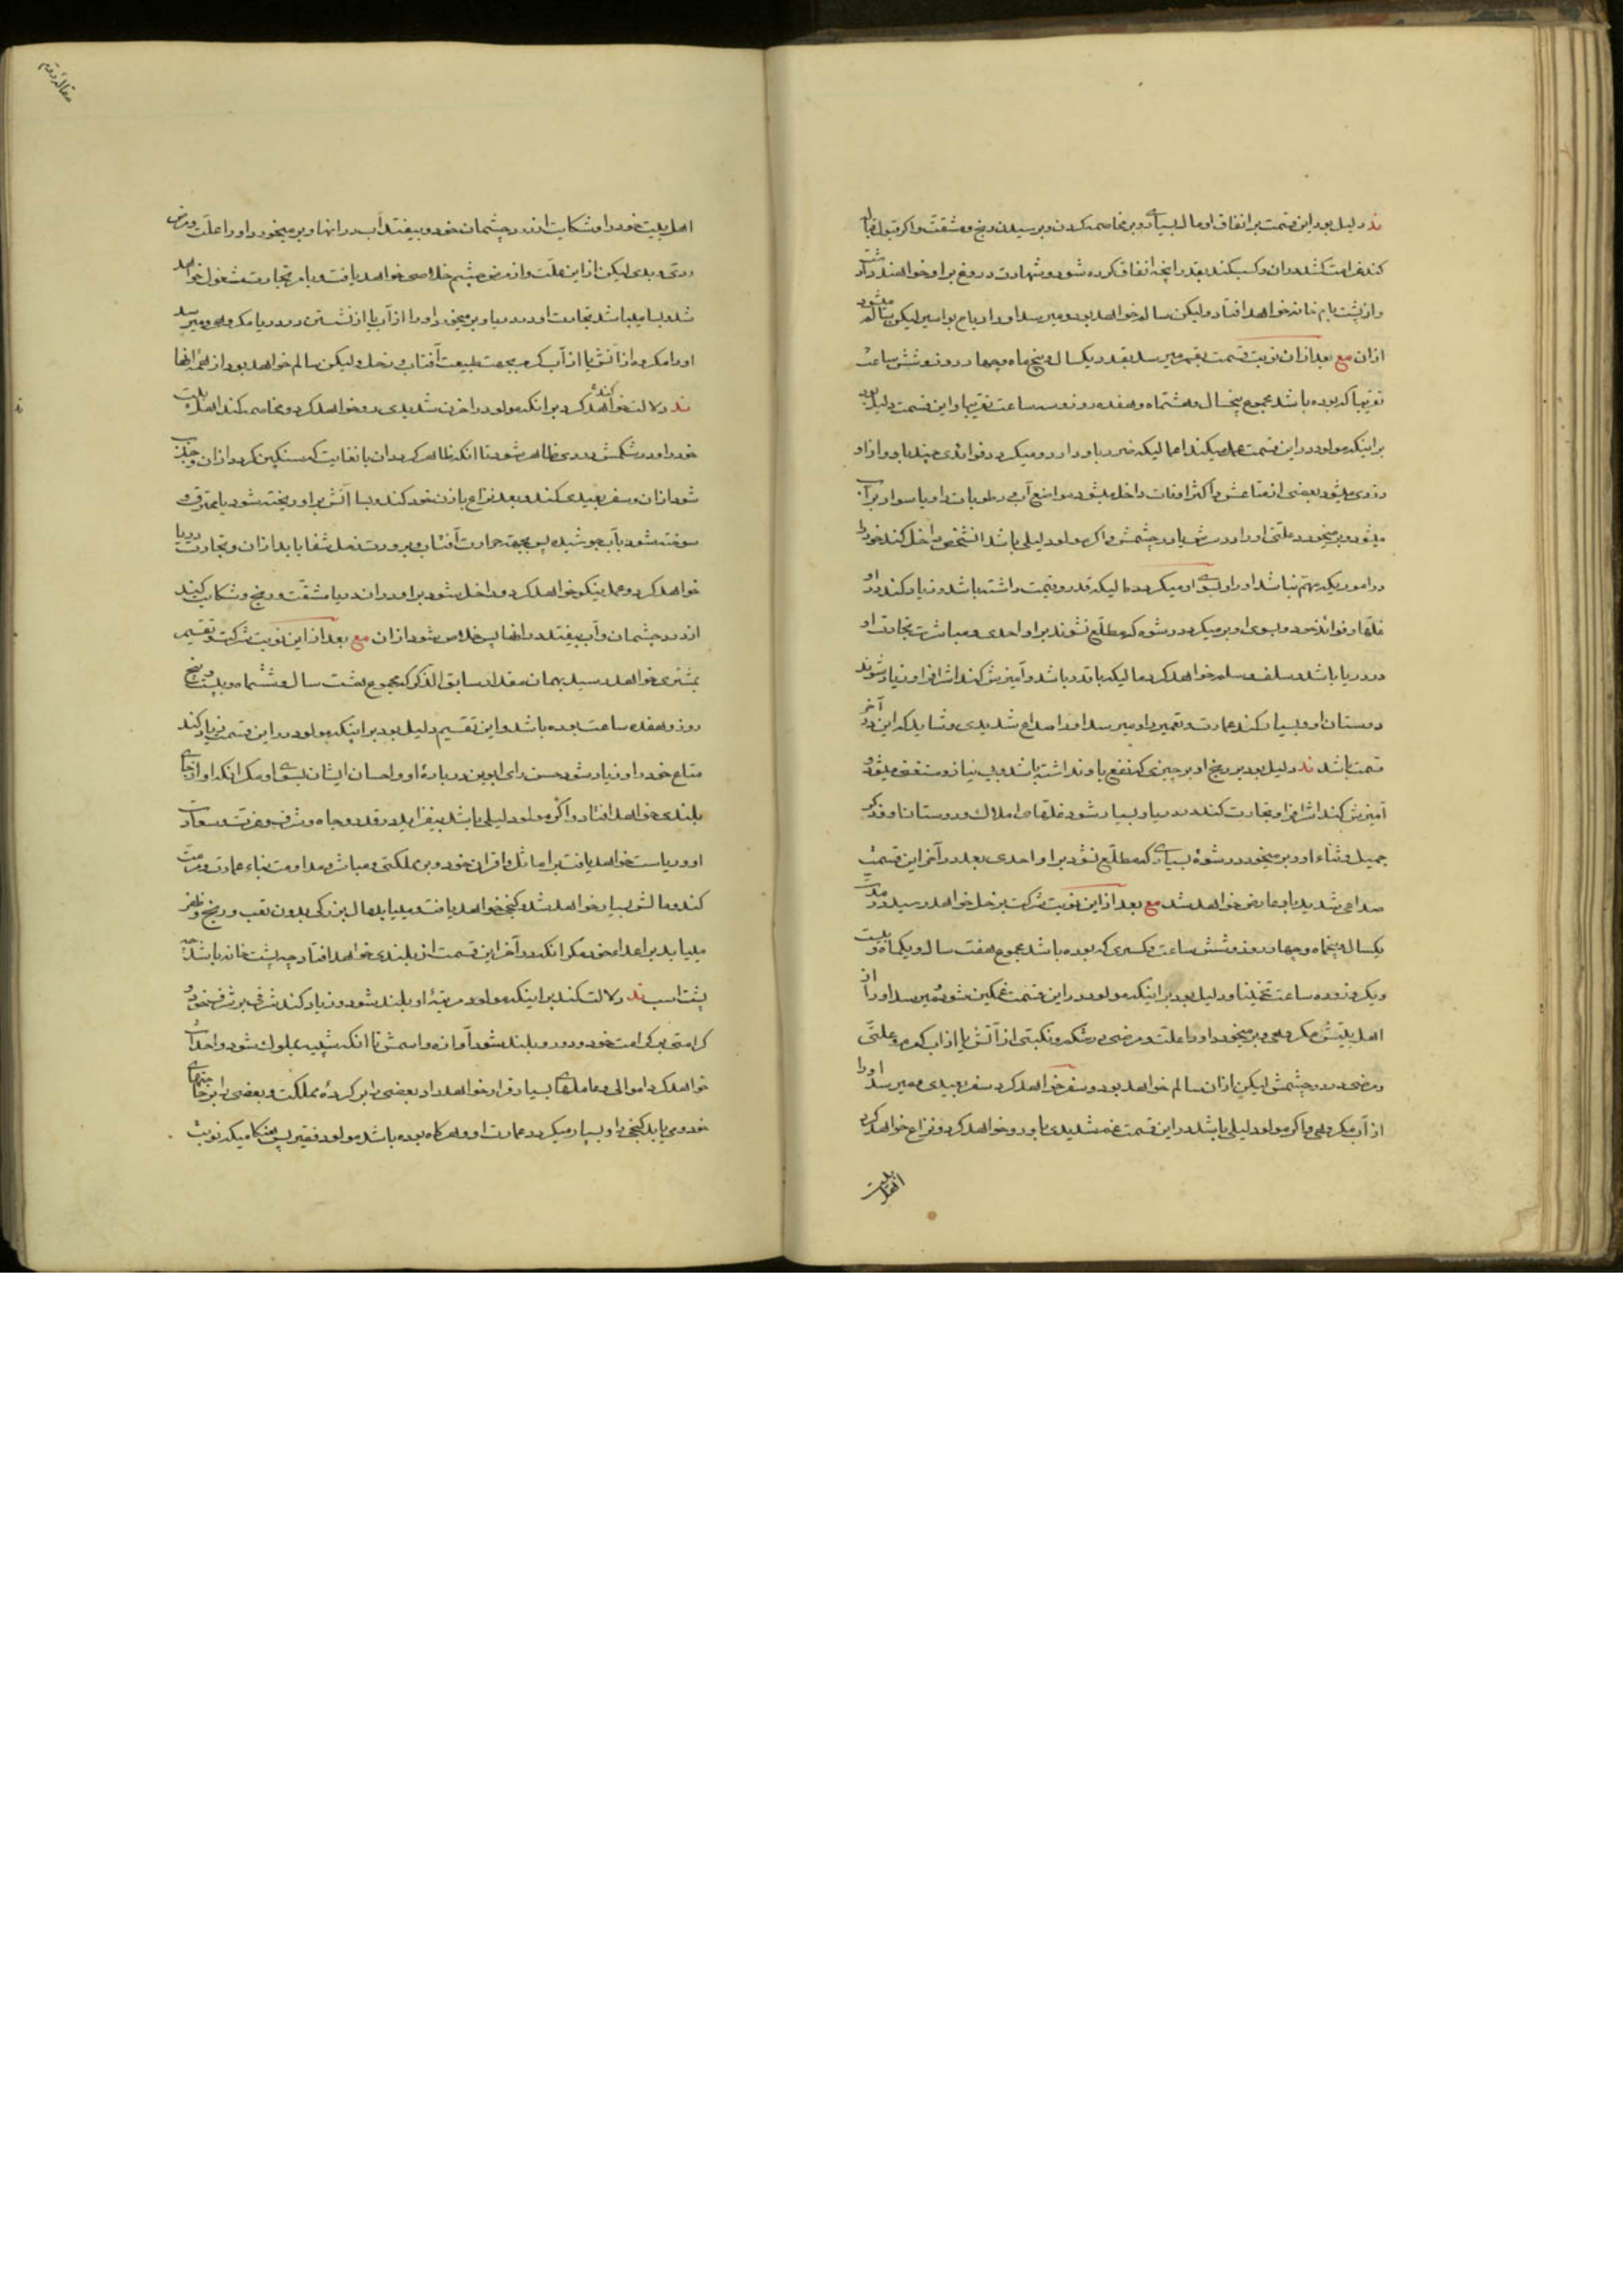 ند دلیل بود این قسمت بر انفاق او مال بسیاری و بر مخاصمه کردن و بر رسیدن رنج و مشقت و اکر قبول
کند غرامت کشد دران و کسب کند بقدر آنچه انفاق کرده شود و شهادت دروغ بر او خواهند داد
و از پشت بام خانه خواهد افتاد و لیکن سالم خواهد بود و میرسد او را ریاح بواسیر لیکن سالم میشود
ازان مع بعد ازان نوبت قسمت بقمر میرسد بقدر یکسال و پنج ماه و چهار روز و شش ساعت
تقریبا که بوده باشد مجموع پنجسال و هشتماه و هفده روز و سه ساعت تقریبا و این قسمت دلیل بود
بر اینکه مولود در این قسمت عمل میکند اعمالیکه ضرر باو دارد و میکرد فوائدی چند باو و از او
دزدی میشود بعضی از متاعش و اکثر اوقات داخل میشود مواضع آب و رطوبات را و یا سوار بر آب
میشود و بر میخورد علتی او را در سرش یا در چشمش و اکر مولود لیلی باشد انشخص داخل کند خود را
در اموریکه مهم نباشد او را و بسوی او میکردد مالیکه قدر و قیمت داشته باشد و زیاد کند در او
غلهها و فوائد خود و بسوی او بر میکردد رشوه که مطلع نشوند بر او احدی و مباشرت تجارت او
در دریا باشد و سلف و سلم خواهد کرد مالیکه باقدر باشد و آمیزش کند اشراف را و زیاد شوند
دوستان او و بسیار کند عمارت و تعمیر را و میرسد او را صداع شدیدی و شاید که این در آخر
قسمت باشد ند دلیل بود بر رنج او بر چیزی که نفع باو نداشته باشد و بی نیاز و مستغنی میشود
آمیزش کند اشراف را و تجارت کند در دریا و بسیار شود غلهای املاک و دوستان او و ذکر
جمیل و ثناء او و بر میخورد رشوهٔ بسیاری که مطلع نشود بر او احدی بعد در آخر این قسمت
صداعی شدید باو عارض خواهد شد مع بعد از این نوبت شرکت بزحل خواهد رسید و در مدت
یکسال و پنجماه و چهار روز و شش ساعت و کسری که بوده باشد مجموع هفت سال و یکماه و بیست
و یکروز و ده ساعت تخمینا و دلیل بود بر اینکه مولود در این قسمت غمکین شود و میرسد او را از
اهل بیتش مکروهی و بر میخورد او را علت و مرضی در شکم و نکبتی از آتش یا از آب کرم و علتی
و مرضی در دو چشمش لیکن ازان سالم خواهد بود و سفر خواهد کرد سفر بعیدی و میرسد او را
از آب مکروهی و اکر مولود لیلی باشد در این قسمت غم شدیدی باو رو خواهد کرد و نزاع خواهد کرد
اهل بیت
مقالهٔ دویم
اهل بیت خود را و شکایت از درد چشمان خود و بیفتد آب در انها و بر میخورد او را علت و مرض
ردی و بدی لیکن از این علت و از مرض چشم خلاصی خواهد یافت و بامر تجارت مشغول خواهد
شد و بسا میباشد تجارت او در دریا و بر میخورد او را از آب یا از نشستن در دریا مکروهی و میرسد
او را مکروه از آتش یا از آب کرم بجهت طبیعت آفتاب و زحل و لیکن سالم خواهد بود از همهٔ انها
ند دلالت خواهد کرد بر انکه مولود را حزن شدیدی رو خواهد کرد و مخاصمه کند اهل بیت
خود را و در شکمش دردی ظاهر شود تا انکه ظاهر کردد ان بغایت که سنکین کردد ازان و
شود ازان و سفر بعیدی کند و بعد نزاع با زن خود کند و بسا آتش بر او ریخته شود یا محترق و
سوخته شود بآب جوشیده پس بجهة حرارت آفتاب و برودت زحل شفا یابد ازان و تجارت دریا
خواهد کرد و عمل نیکو خواهد کرد و داخل شود بر او در اندریا مشقت و رنج و شکایت کند
از درد چشمان و آب بیفتد در انها پس خلاص شود ازان مع بعد از این نوبت شرکت و تقسیم
بمشتری خواهد رسید بهمان مقدار سابق الذکر که مجموع هشت سال و ششماه و بیست و پنج
روز و هفده ساعت بوده باشد و این تقسیم دلیل بود بر اینکه مولود در این قسمت زیاد کند
متاع خود را و زیاد شود حسن رای ابوین در بارهٔ او و احسان ایشان بسوی او مکر انکه او از جای
بلندی خواهد افتاد و اکر مولود لیلی باشد بیفزاید در قدر و جاه و شرف و عزت و سعادت
او و ریاست خواهد یافت بر اماثل و اقران خود و بر مملکتی و مباشر و مداومت بناء عمارت و مرمت
کند و مالش بسیار خواهد شد و کنجی خواهد یافت و میباید مال بزرکی بدون تعب و رنج و ظفر
میباید بر اعداء خود مکر انکه در آخر این قسمت از بلندی خواهد افتاد چه پشت خانه باشد چه
پشت اسب ند دلالت کند بر اینکه مولود مرتبهٔ او بلند شود و زیاد کند شرفی بر شرف خود و
کرامتی بر کرامت خود و دور و بلند شود آوازه و اسمش تا انکه شبیه بملوک شود و احداث
خواهد کرد اموالی و عاملهای بسیار قرار خواهد داد بعضی را بر کردهٔ مملکت و بعضی را بر خرجهای
خود و می یابد کنجی را و بسیار میکردد عمارت او و هر کاه بوده باشد مولود فقیر پس هنکامیکه نوبت